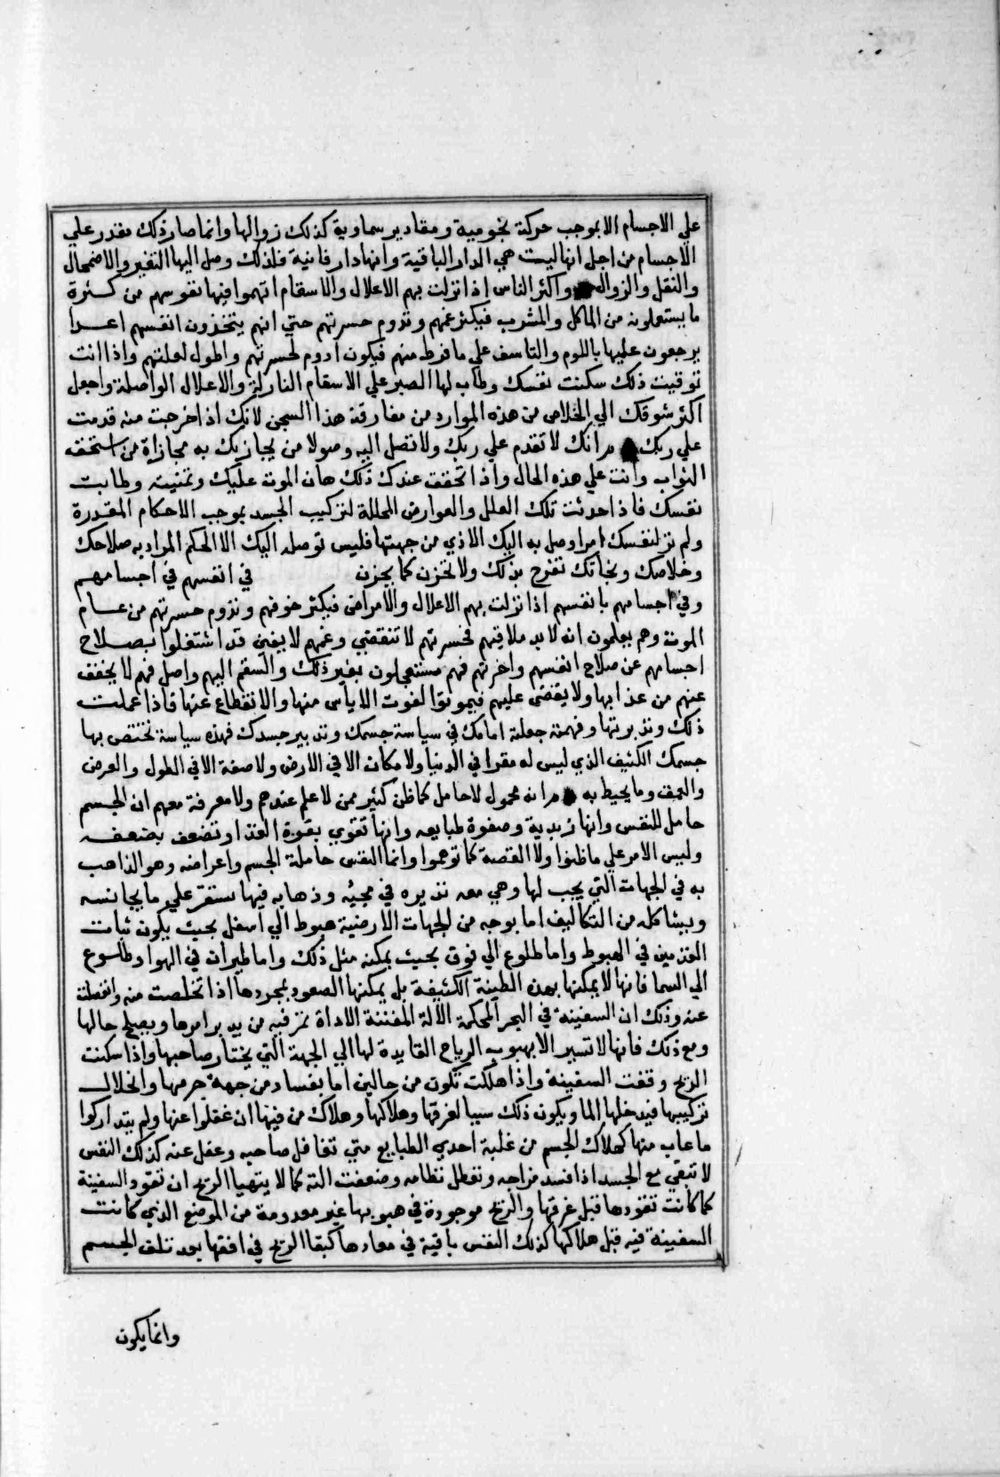 علي الاجسام الا بموجب حركة نجومية ومقادير سماوية كذلك زوالها وانما صار ذلك مقدر علي
الاجسام من اجل انها ليست هي الدار الباقية وانها دار فانية فلذلك وصل اليها التغير والاضمحال
والنقل والزوال واكثر الناس اذا نزلت بهم الاعلال والاسقام اتهموا فيها نفوسهم من كثرة
ما يستعملونه من الماكل والمشرب فيكثر غمهم وتدوم حسرتهم حتي انهم يتخذون انفسهم اعدا
يرجعون عليها باللوم والتاسف علي ما فرط منهم فيكون ادوم لحسرتهم واطول لعلتهم واذا انت
توقيت ذلك سكنت نفسك وطاب لها الصبر علي الاسقام النازلة والاعلال الواصلة واجعل
اكثر شوقك الي الخلاص من هذه الموارد من مفارقة هذا السجن لانك اذا خرجت منه قدمت
علي ربك مرانك لا تقدم علي ربك ولا تصل اليه وصولا من يجازيك به مجازاة من استحقه
الثواب وانت علي هذه الحال واذا تحقق عندك ذلك هان الموت عليك وتمنيته وطابت
نفسك فاذا حدثت تلك العلل والعوارض المحللة لتركيب الجسد بموجب الاحكام المقدرة
ولم تر لنفسك امرا وصل به اليك الاذي من جهتها فليس توصله اليك الا الحكم المراد به صلاحك
وخلاصك ونجاتك تفرح بذلك ولا تحزن كما يحزن في انفسهم في اجسامهم
وفي اجسامهم بانفسهم اذا نزلت بهم الاعلال والامراض فيكثر خوفهم وتدوم حسرتهم من عام
الموت وهم يعلمون انه لا بد ملاقيهم فحسرتهم لا تنقضي وغمهم لا يفني قد اشتغلوا بصلاح
اجسامهم عن صلاح انفسهم واخرتهم فهم مستعملون بغير ذلك والسقم اليهم واصل فهم لا يخفف
عنهم من عذابها ولا يقضي عليهم فيموتوا لفوت الاياس منها والانقطاع عنها فاذا عملت
ذلك وتدبرتها وفهمته جعلته امامك في سياسة جسمك وتدبير جسدك فهذه سياسة تختص بها
جسمك الكثيف الذي ليس له مقرا في الدنيا ولا مكان الا في الارض ولا صفة الا في الطول والعرض
والعمق وما يحيط به مرانه محمول لا حامل كما ظن كثير ممن لا علم عندهم ولا معرفة معهم ان الجسم
حامل للنفس وانها زبدية وصفوة طبايعه وانها تقوي بقوة الغذا وتضعف بضعفه
وليس الامر علي ما ظنوا ولا القصة كما توهموا وانما النفس حاملة الجسم واعراضه وهو الذاهب
به في الجهات التي يجب لها وهي معه تديره في مجيئه وذهابه فيها يستقر علي ما يجانسه
ويشاكله من التكاليف اما بوجه من الجهات الارضية هبوط الي اسفل بحيث يكون ثبات
القدمين في الهبوط واما طلوع الي فوق بحيث يمكنه مثل ذلك واما طيران في الهوا وطلوع
الي السما فانها لا يمكنها بهذه الطينة الكثيفة بل يمكنها الصعود بمجردها اذا تخلصت منه وانفصلت
عنه وذلك ان السفينة في البحر المحكمة الالة المتقنة الاداة تمر فيه من يدبر امرها ويصلح حالها
ومع ذلك فانها لا تسير الا بهبوب الرياح القايدة لها الي الجهة التي يختار صاحبها واذا سكنت
الريح وقفت السفينة واذا هلكت تكون من حالين اما بفساد من جهة جرمها وانحلال
تركيبها فيدخلها الما ويكون ذلك سببا لغرقها وهلاكها وهلاك من فيها ان غفلوا عنها ولم يتداركوا
ما عاب منها كهلاك الجسم من غلبة احدي الطبايع متي تغافل صاحبه وغفل عنه كذلك النفس
لا تبقي مع الجسد اذا فسد مزاجه وتعطل نظامه وضعفت الته كما لا يتهيا الريح ان تقود السفينة
كما كانت تقودها قبل غرقها والريح موجودة في هبوبها غير معدومة من الموضع الذي كانت
السفينة فيه قبل هلاكها كذلك النفس باقية في معادها كبقا الريح في افقها بعد تلف الجسم
وانما يكون